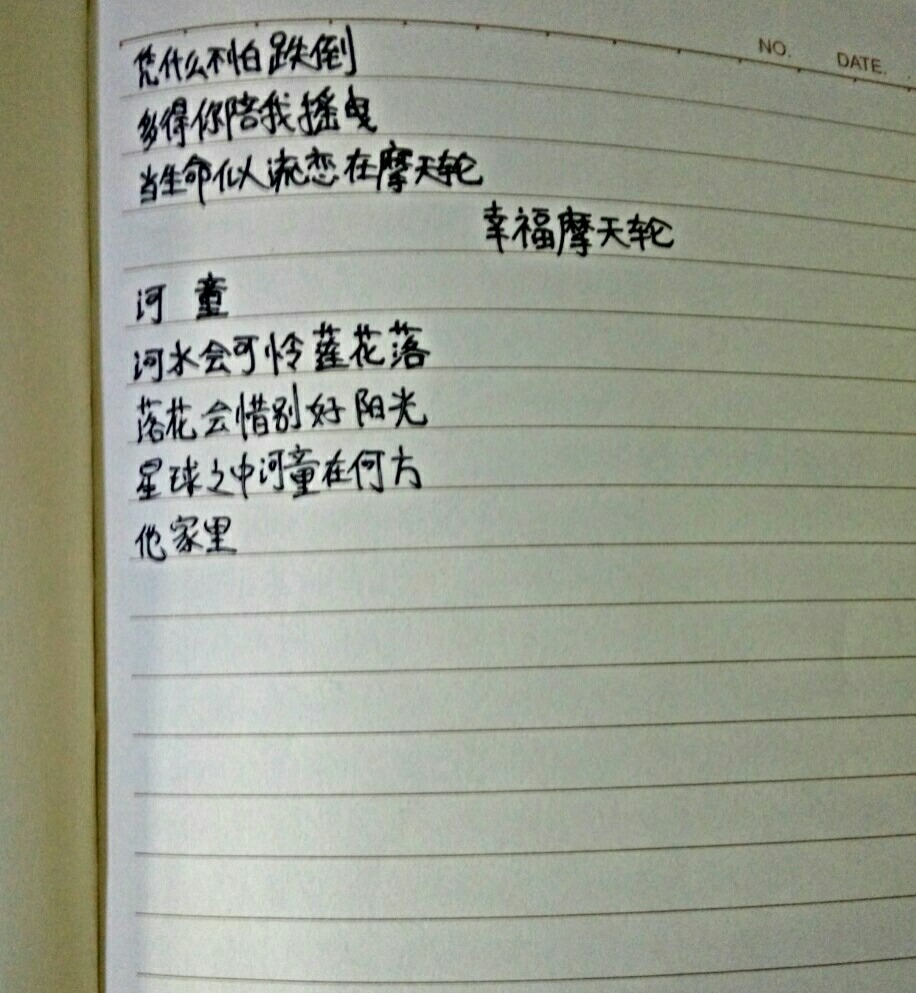 NO. DATE.
凭什么不怕跌倒
多得你陪我摇曳
当生命似流恋在摩天轮
幸福摩天轮
河童
河水会可怜莲花落
落花会惜别好阳光
星球之中河童在何方
他家里